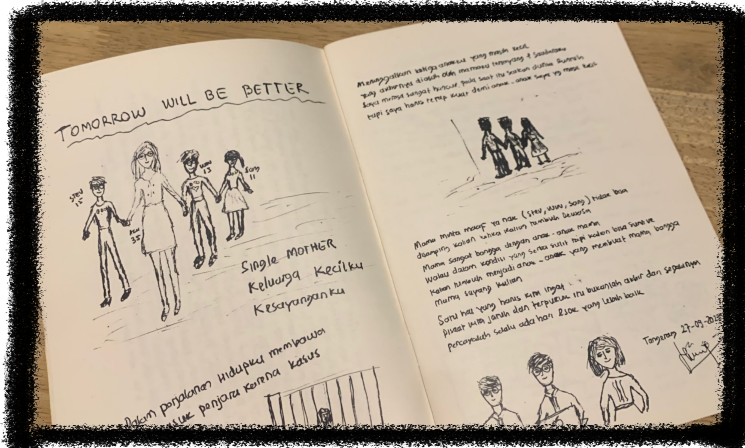 TOMORROW WILL BE BETTER
STEV
15
35
WILL
13
SONG
11
Single MOTHER
Keluarga Kecilku
Kesayanganku
Dalam perjalanan Hidupku membawa
penjara karena kasus
Meninggalkan ketiga anakku yang masih kecil
yang akhirnya diasuh oleh mamaku tersayang + saudaraku
tapi saya harus tetap kuat demi anak-anak saya yg masih kecil
Mama minta maaf ya nak (stev, will, song) tidak bisa
dampingi kalian ketika kalian tumbuh dewasa
Mama sangat bangga dengan anak-anak mama
walau dalam kondisi yang serba sulit tapi kalian bisa survive
kalian tumbuh menjadi anak-anak yang membuat mama bangga
Mama sayang kalian
Satu hal yang harus kita ingat
pada saat kita jatuh dan terpuruk itu bukanlah akhir dari segalanya
percayalah selalu ada hari Esok yang lebih baik
Tangerang 27-09-